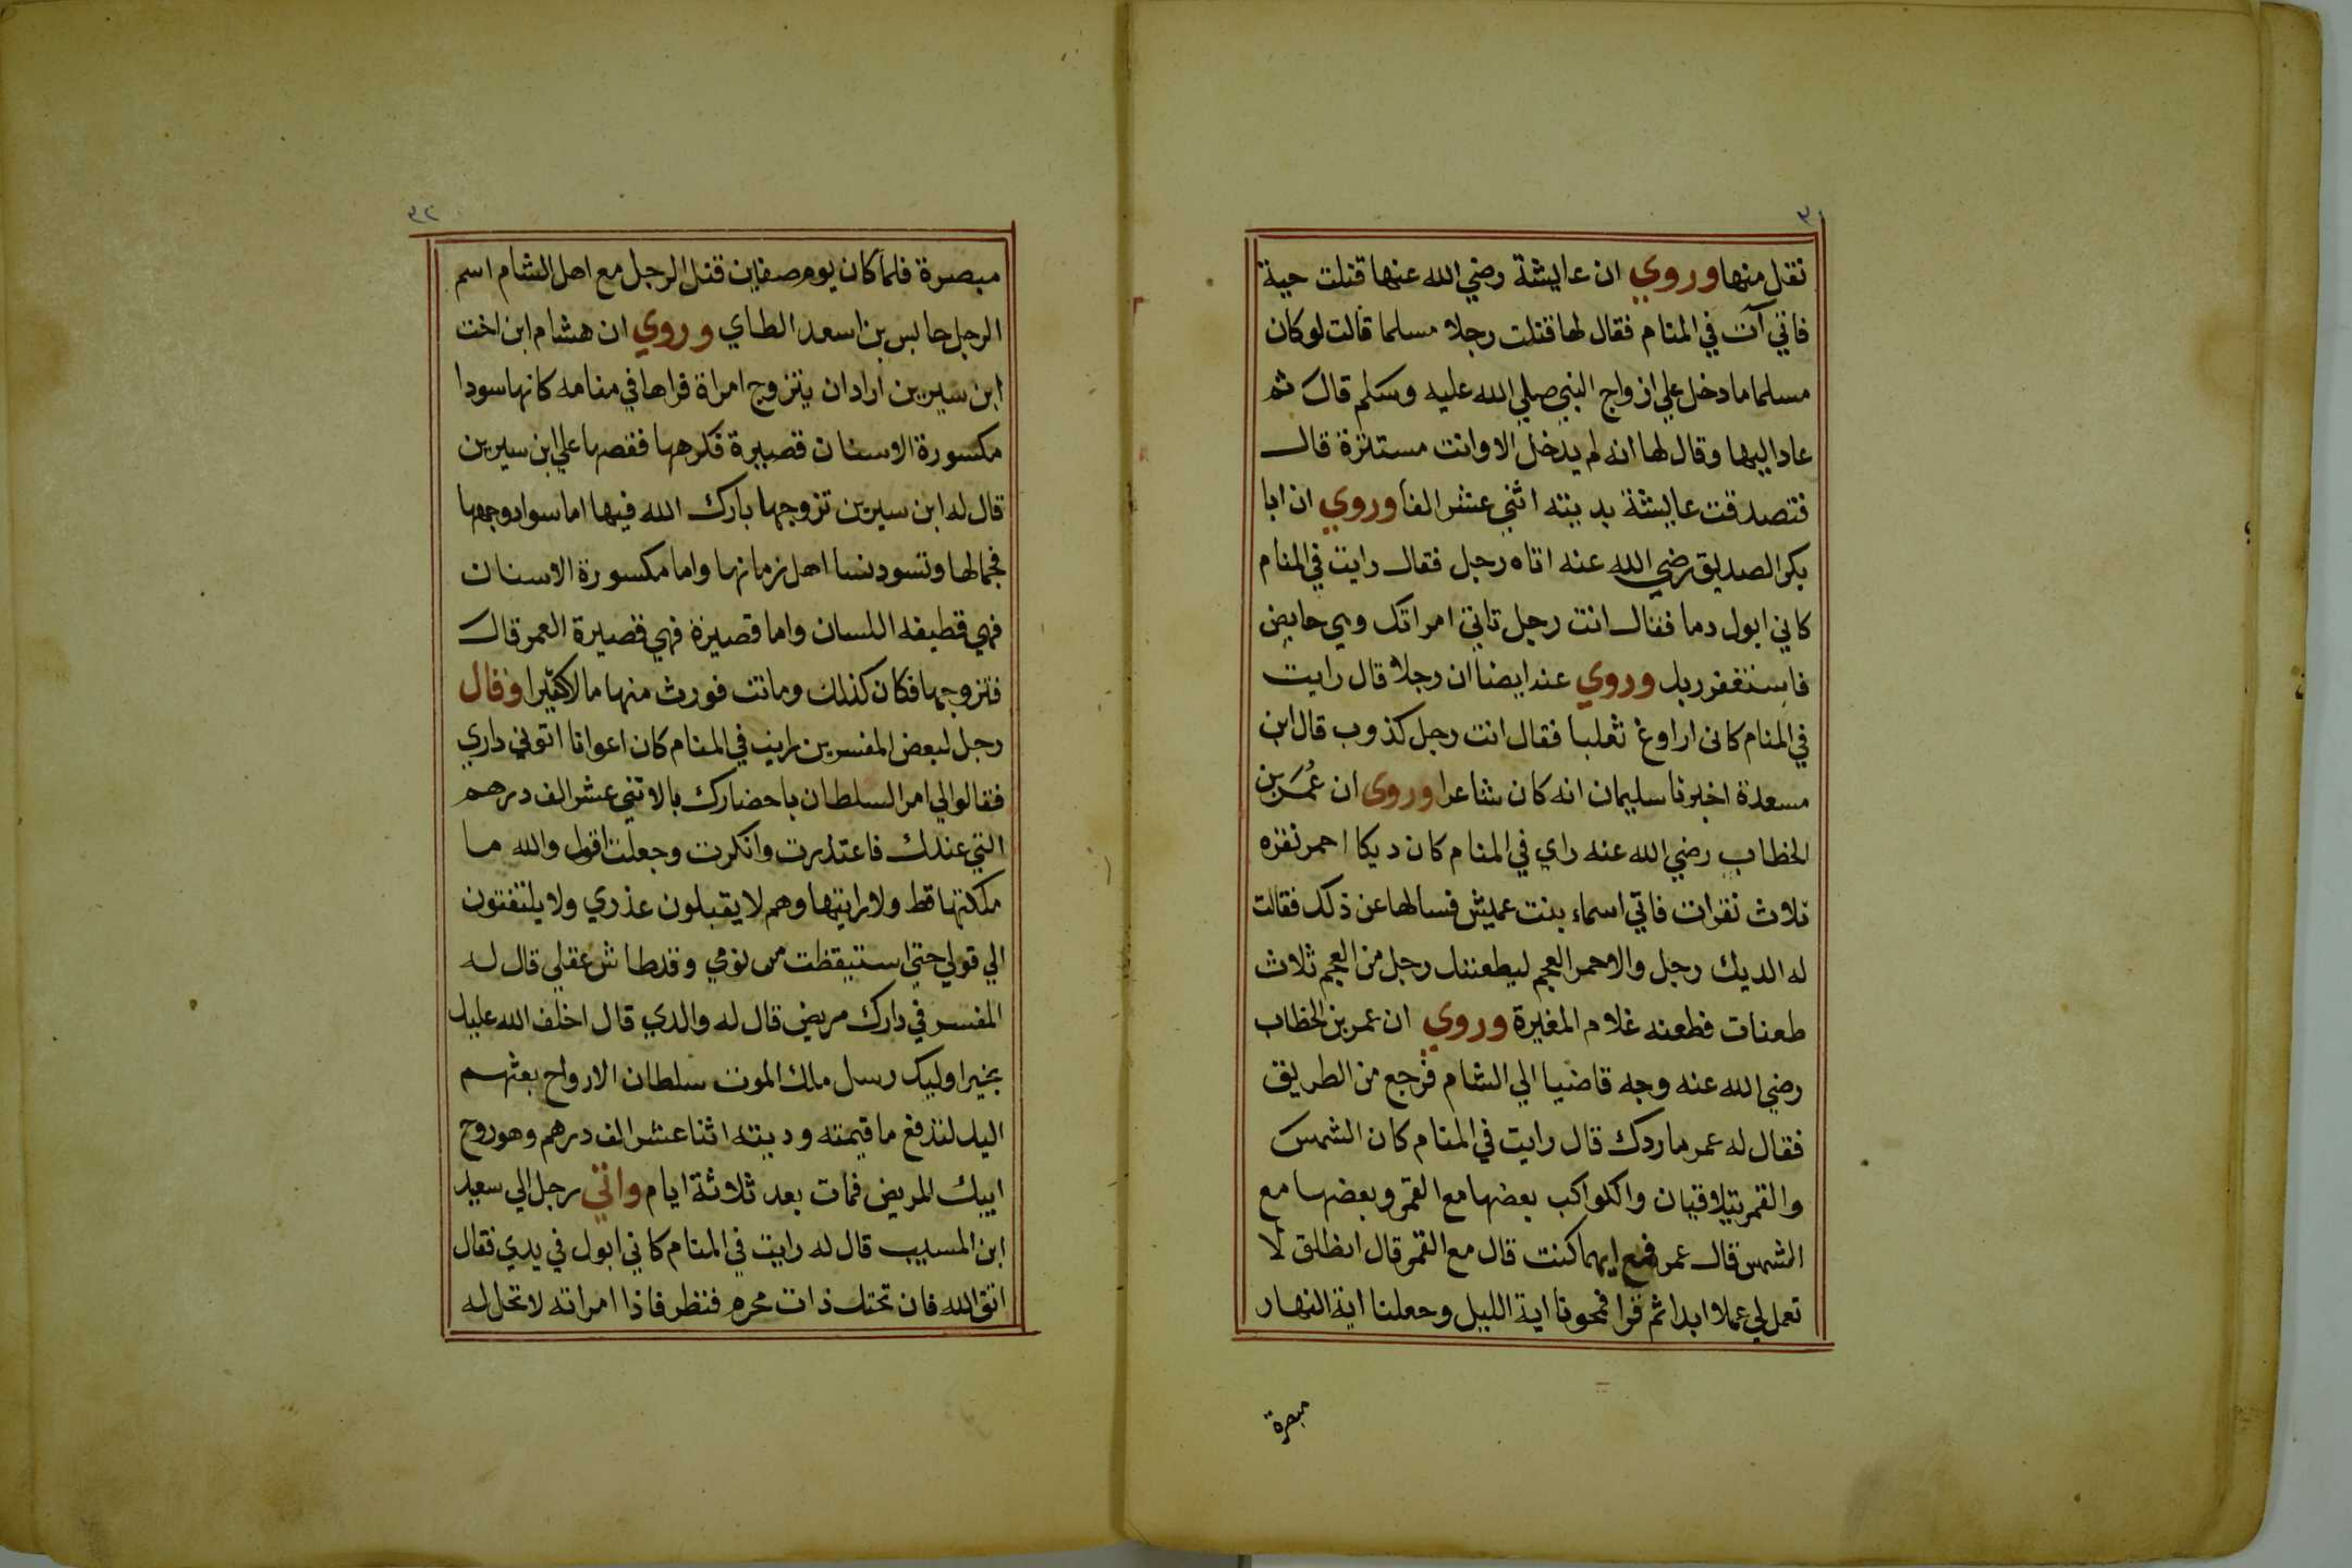 نقل منها وروي ان عايشة رضي الله عنها قتلت حية
فاتي آت في المنام فقال لها قتلت رجلا مسلما قالت لو كان
مسلما ما دخل علي ازواج النبي صلي الله عليه وسلم قال ثم
عاد اليها وقال لها انه لم يدخل الا وانت مستترة قال
فتصدقت عايشة بديته اثني عشر الفا وروي ان ابا
بكر الصديق رضي الله عنه اتاه رجل فقال رايت في المنام
كاني ابول دما فقال انت رجل تاتي امراتك وهي حايض
فاستغفر ربك وروي عنه ايضا ان رجلا قال رايت
في المنام كانى اراوغ ثعلبا فقال انت رجل كذوب قال ابن
مسعدة اخبرنا سليمان انه كان شاعرا وروى ان عُمَر بن
الخطاب رضي الله عنه راي في المنام كان ديكا احمر نقره
ثلاث نقرات فاتي اسماء بنت عميش فسالها عن ذلك فقالت
له الديك رجل والاحمر العجم ليطعننك رجل من العجم ثلاث
طعنات فطعنه غلام المغيرة وروي ان عمر بن الخطاب
رضي الله عنه وجه قاضيا الي الشام فرجع من الطريق
فقال له عمر ما ردك قال رايت في المنام كان الشمس
والقمر يتلاقيان والكواكب بعضها مع القمر وبعضها مع
الشمس قال عمر فمع ايهما كنت قال مع القمر قال انطلق لا
تعمل لي عملا ابدا ثم قرا فمحونا اية الليل وجعلنا اية النهار
مبصرة
٣٢
مبصرة فلما كان يوم صفاين قتل الرجل مع اهل الشام اسم
الرجل حابس بن اسعد الطاي وروي ان هشام ابن اخت
ابن سيرين اراد ان يتزوج امراة فراها في منامه كانها سودا
مكسورة الاسنان قصيرة فكرهها فقصها علي ابن سيرين
قال له ابن سيرين تزوجها بارك الله فيها اما سواد وجهها
فجمالها وتسود نسا اهل زمانها واما مكسورة الاسنان
فهي قطيفه اللسان واما قصيرة فهي قصيرة العمر قال
فتزوجها فكان كذلك وماتت فورث منها مالا كثيرا وقال
رجل لبعض المفسرين رايت في المنام كان اعوانا اتوني داري
فقالوا لي امر السلطان باحضارك بالاثني عشر الف درهم
التي عندك فاعتذرت وانكرت وجعلت اقول والله ما
ملكتها قط ولا رايتها وهم لا يقبلون عذري ولا يلتفتون
الي قولي حتى استيقظت من نومي وقد طاش عقلي قال له
المفسر في دارك مريض قال له والدي قال اخلف الله عليك
بخير اوليك رسل ملك الموت سلطان الارواح بعثهم
اليك لتدفع ما قيمته وديته اثنا عشر الف درهم وهو روح
ابيك المريض فمات بعد ثلاثة ايام واتي رجل الي سعيد
ابن المسيب قال له رايت في المنام كاني ابول في يدي فقال
اتق الله فان تحتك ذات محرم فنظر فاذا امراته لا تحل له